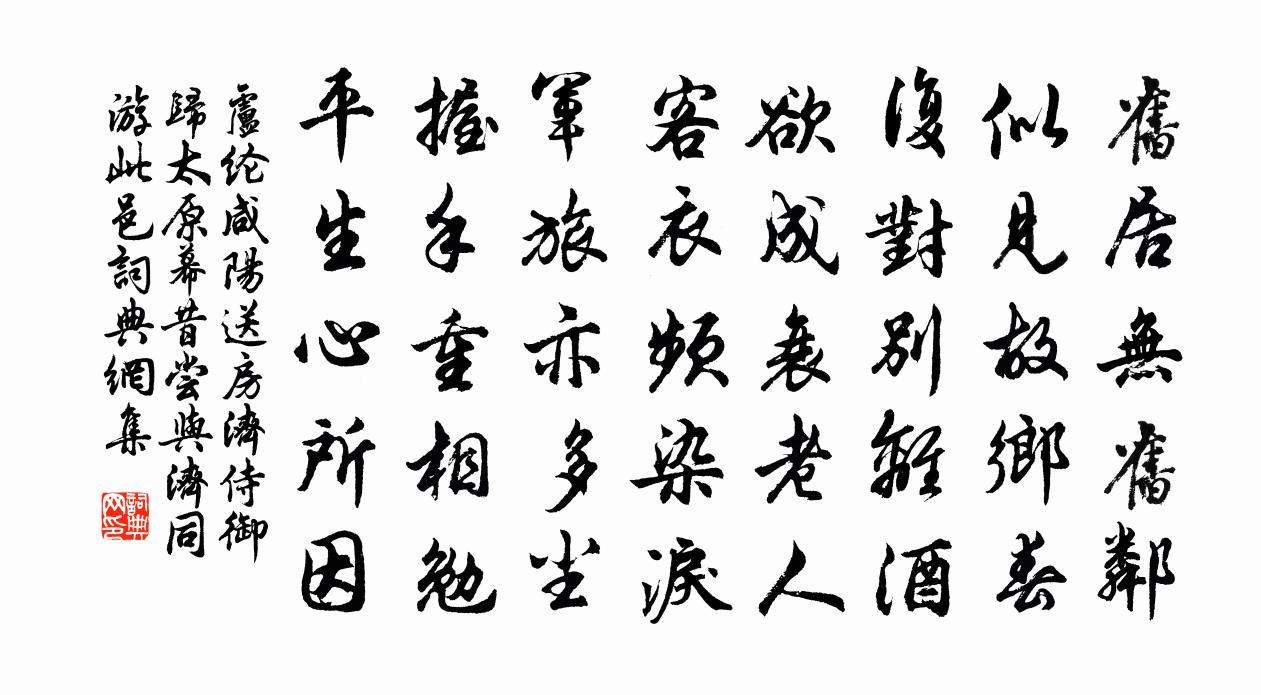 舊居無舊鄰
似見故鄉春
復對別離酒
欲成衰老人
客衣頻染淚
軍旅亦多尘
握手重相勉
平生心所因
盧纶咸陽送房濟侍御
歸太原幕昔尝與濟同
游此邑詞典網集
詞典
网印